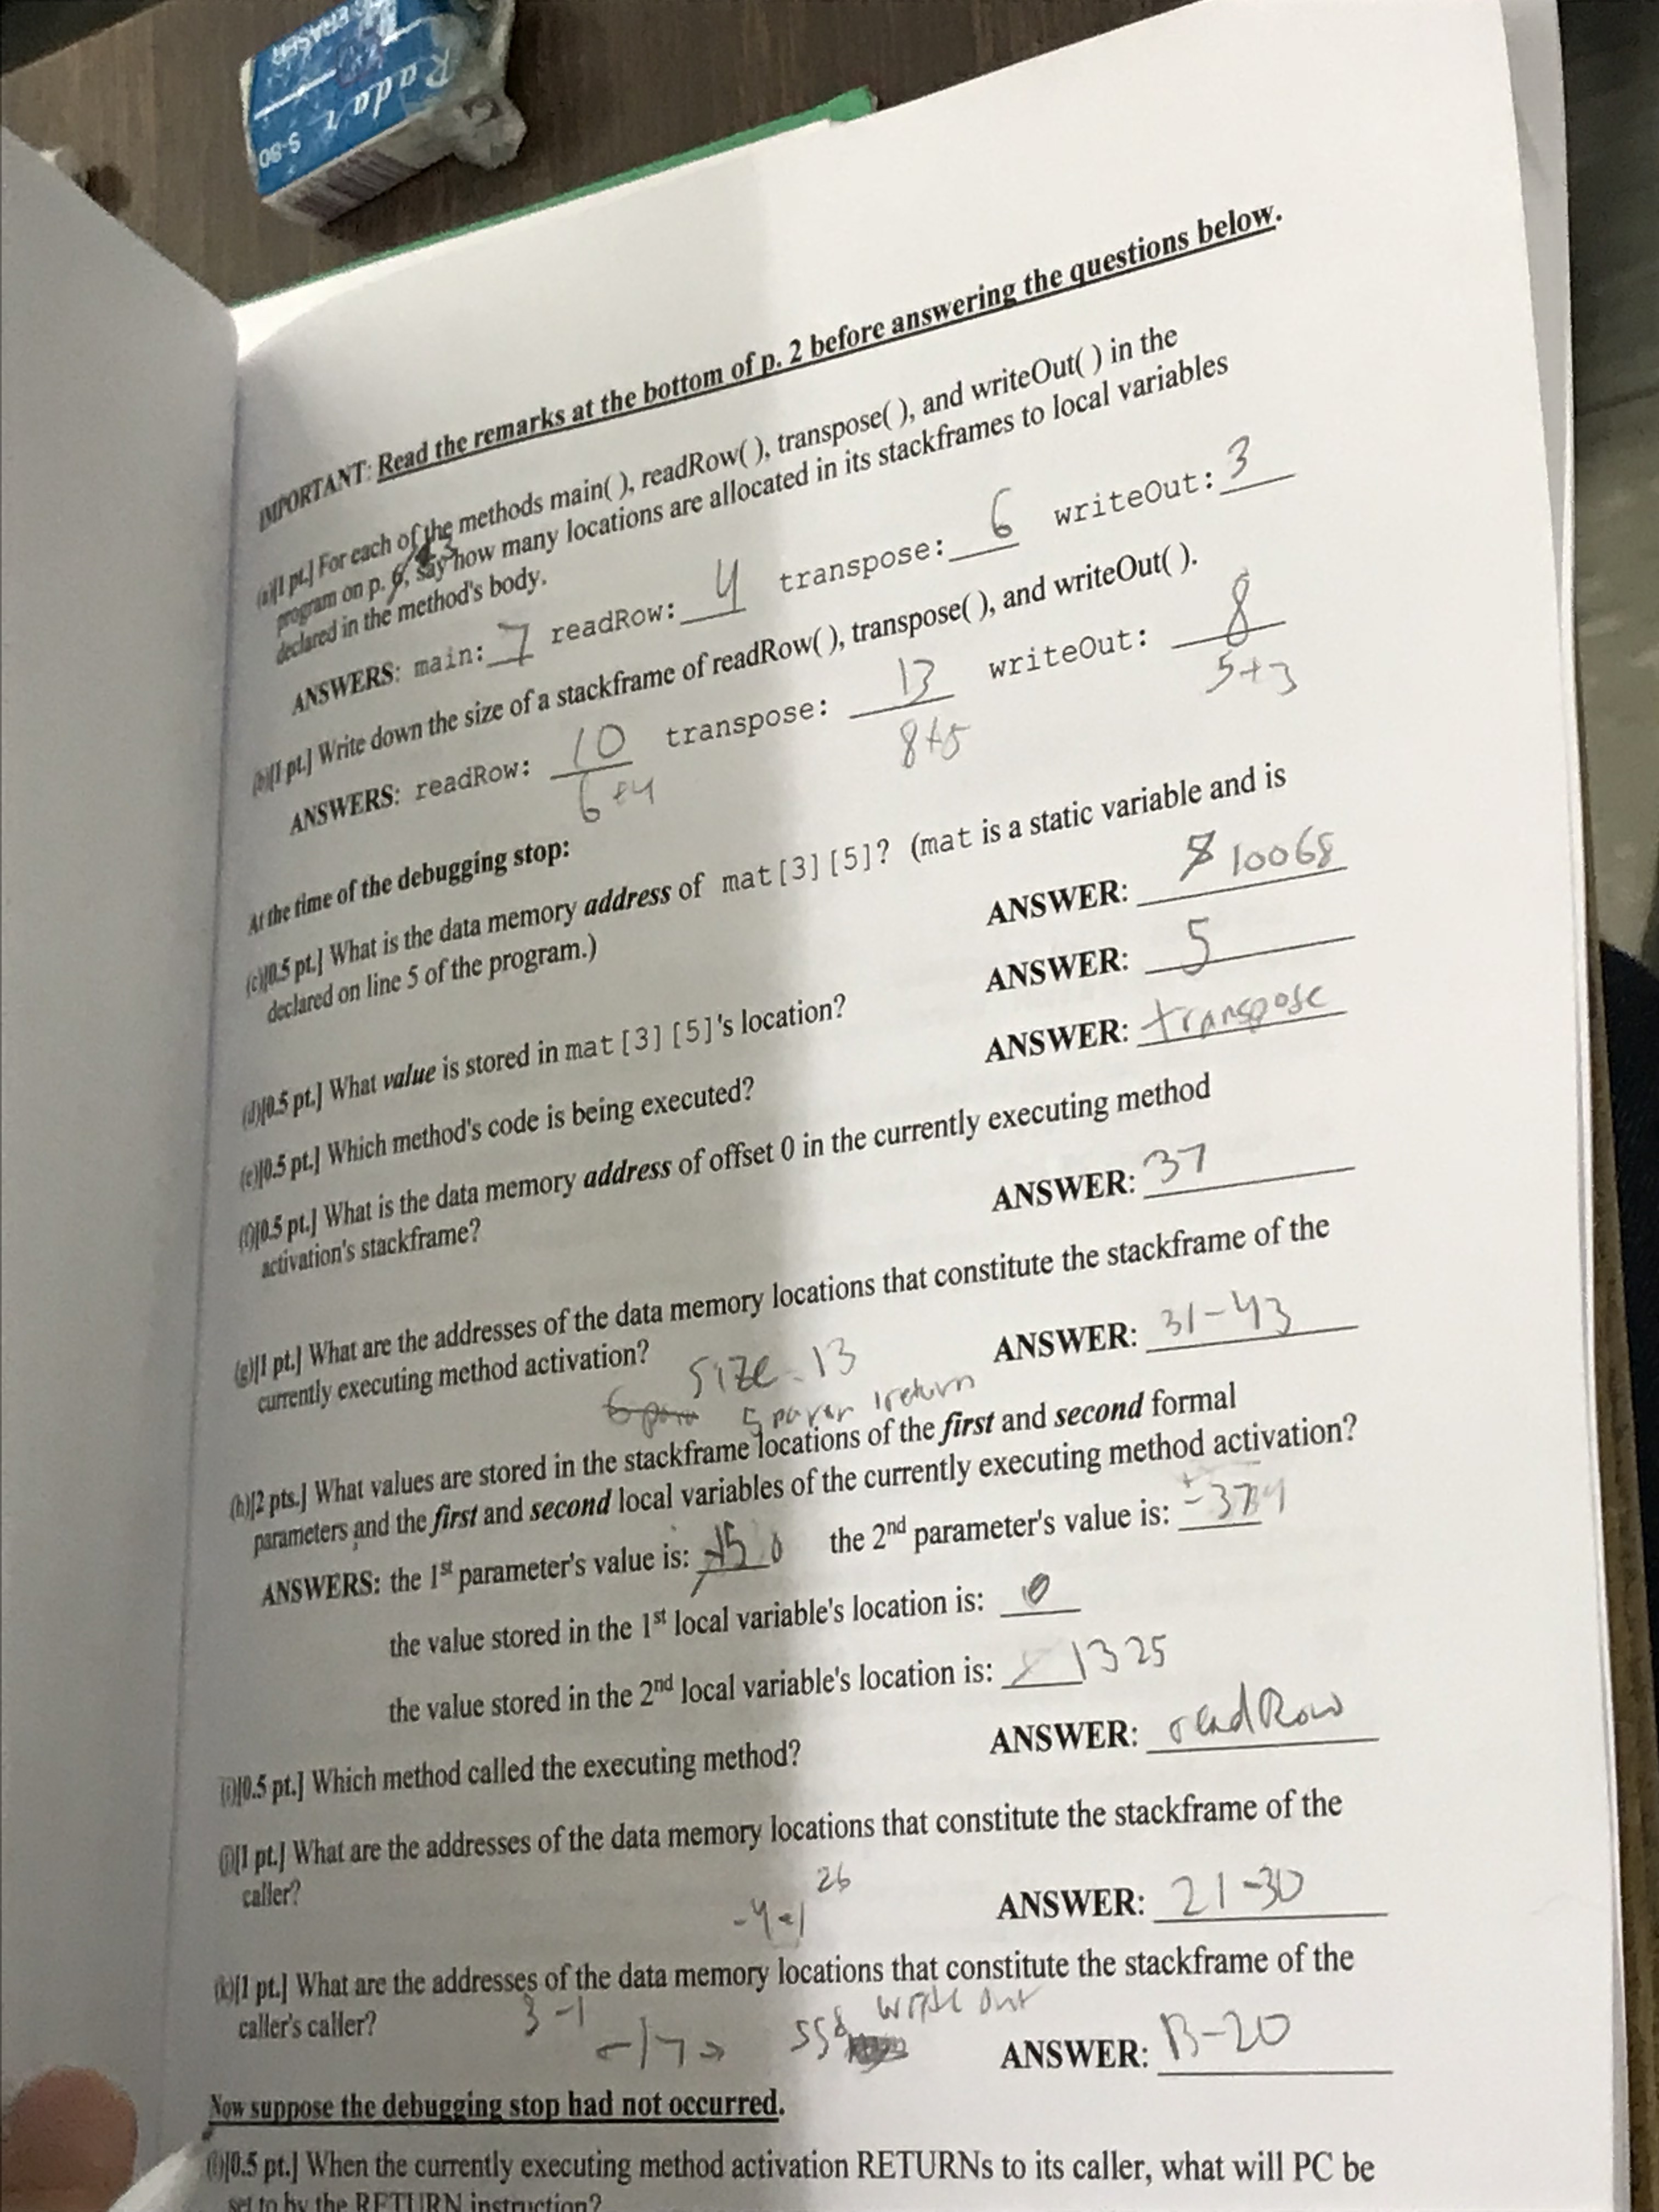 Radar
S-80
ERASER
IMPORTANT: Read the remarks at the bottom of p. 2 before answering the questions below.
(a)[1 pt.] For each of the methods main( ), readRow( ), transpose( ), and writeOut( ) in the
program on p. 6, say how many locations are allocated in its stackframes to local variables
declared in the method's body.
ANSWERS: main: 7 readRow: 4 transpose: 6 writeOut: 3
(b)[1 pt.] Write down the size of a stackframe of readRow( ), transpose( ), and writeOut( ).
ANSWERS: readRow: 10 transpose: 13 writeOut: 8
6+4 8+5 5+3
At the time of the debugging stop:
(c)[0.5 pt.] What is the data memory address of mat[3][5]? (mat is a static variable and is
declared on line 5 of the program.)
ANSWER: 10068
(d)[0.5 pt.] What value is stored in mat[3][5]'s location?
ANSWER: 5
(e)[0.5 pt.] Which method's code is being executed?
ANSWER: transpose
(f)[0.5 pt.] What is the data memory address of offset 0 in the currently executing method
activation's stackframe?
ANSWER: 37
(g)[1 pt.] What are the addresses of the data memory locations that constitute the stackframe of the
currently executing method activation?
ANSWER: 31-43
size - 13
5 param 1 return
(h)[2 pts.] What values are stored in the stackframe locations of the first and second formal
parameters and the first and second local variables of the currently executing method activation?
ANSWERS: the 1st parameter's value is: the 2nd parameter's value is:
the value stored in the 1st local variable's location is: 0
the value stored in the 2nd local variable's location is: 1325
(i)[0.5 pt.] Which method called the executing method?
ANSWER: readRow
(j)[1 pt.] What are the addresses of the data memory locations that constitute the stackframe of the
caller?
26
ANSWER: 21-30
(k)[1 pt.] What are the addresses of the data memory locations that constitute the stackframe of the
caller's caller?
3-1
write out
ANSWER: 13-20
Now suppose the debugging stop had not occurred.
(l)[0.5 pt.] When the currently executing method activation RETURNs to its caller, what will PC be
set to by the RETURN instruction?